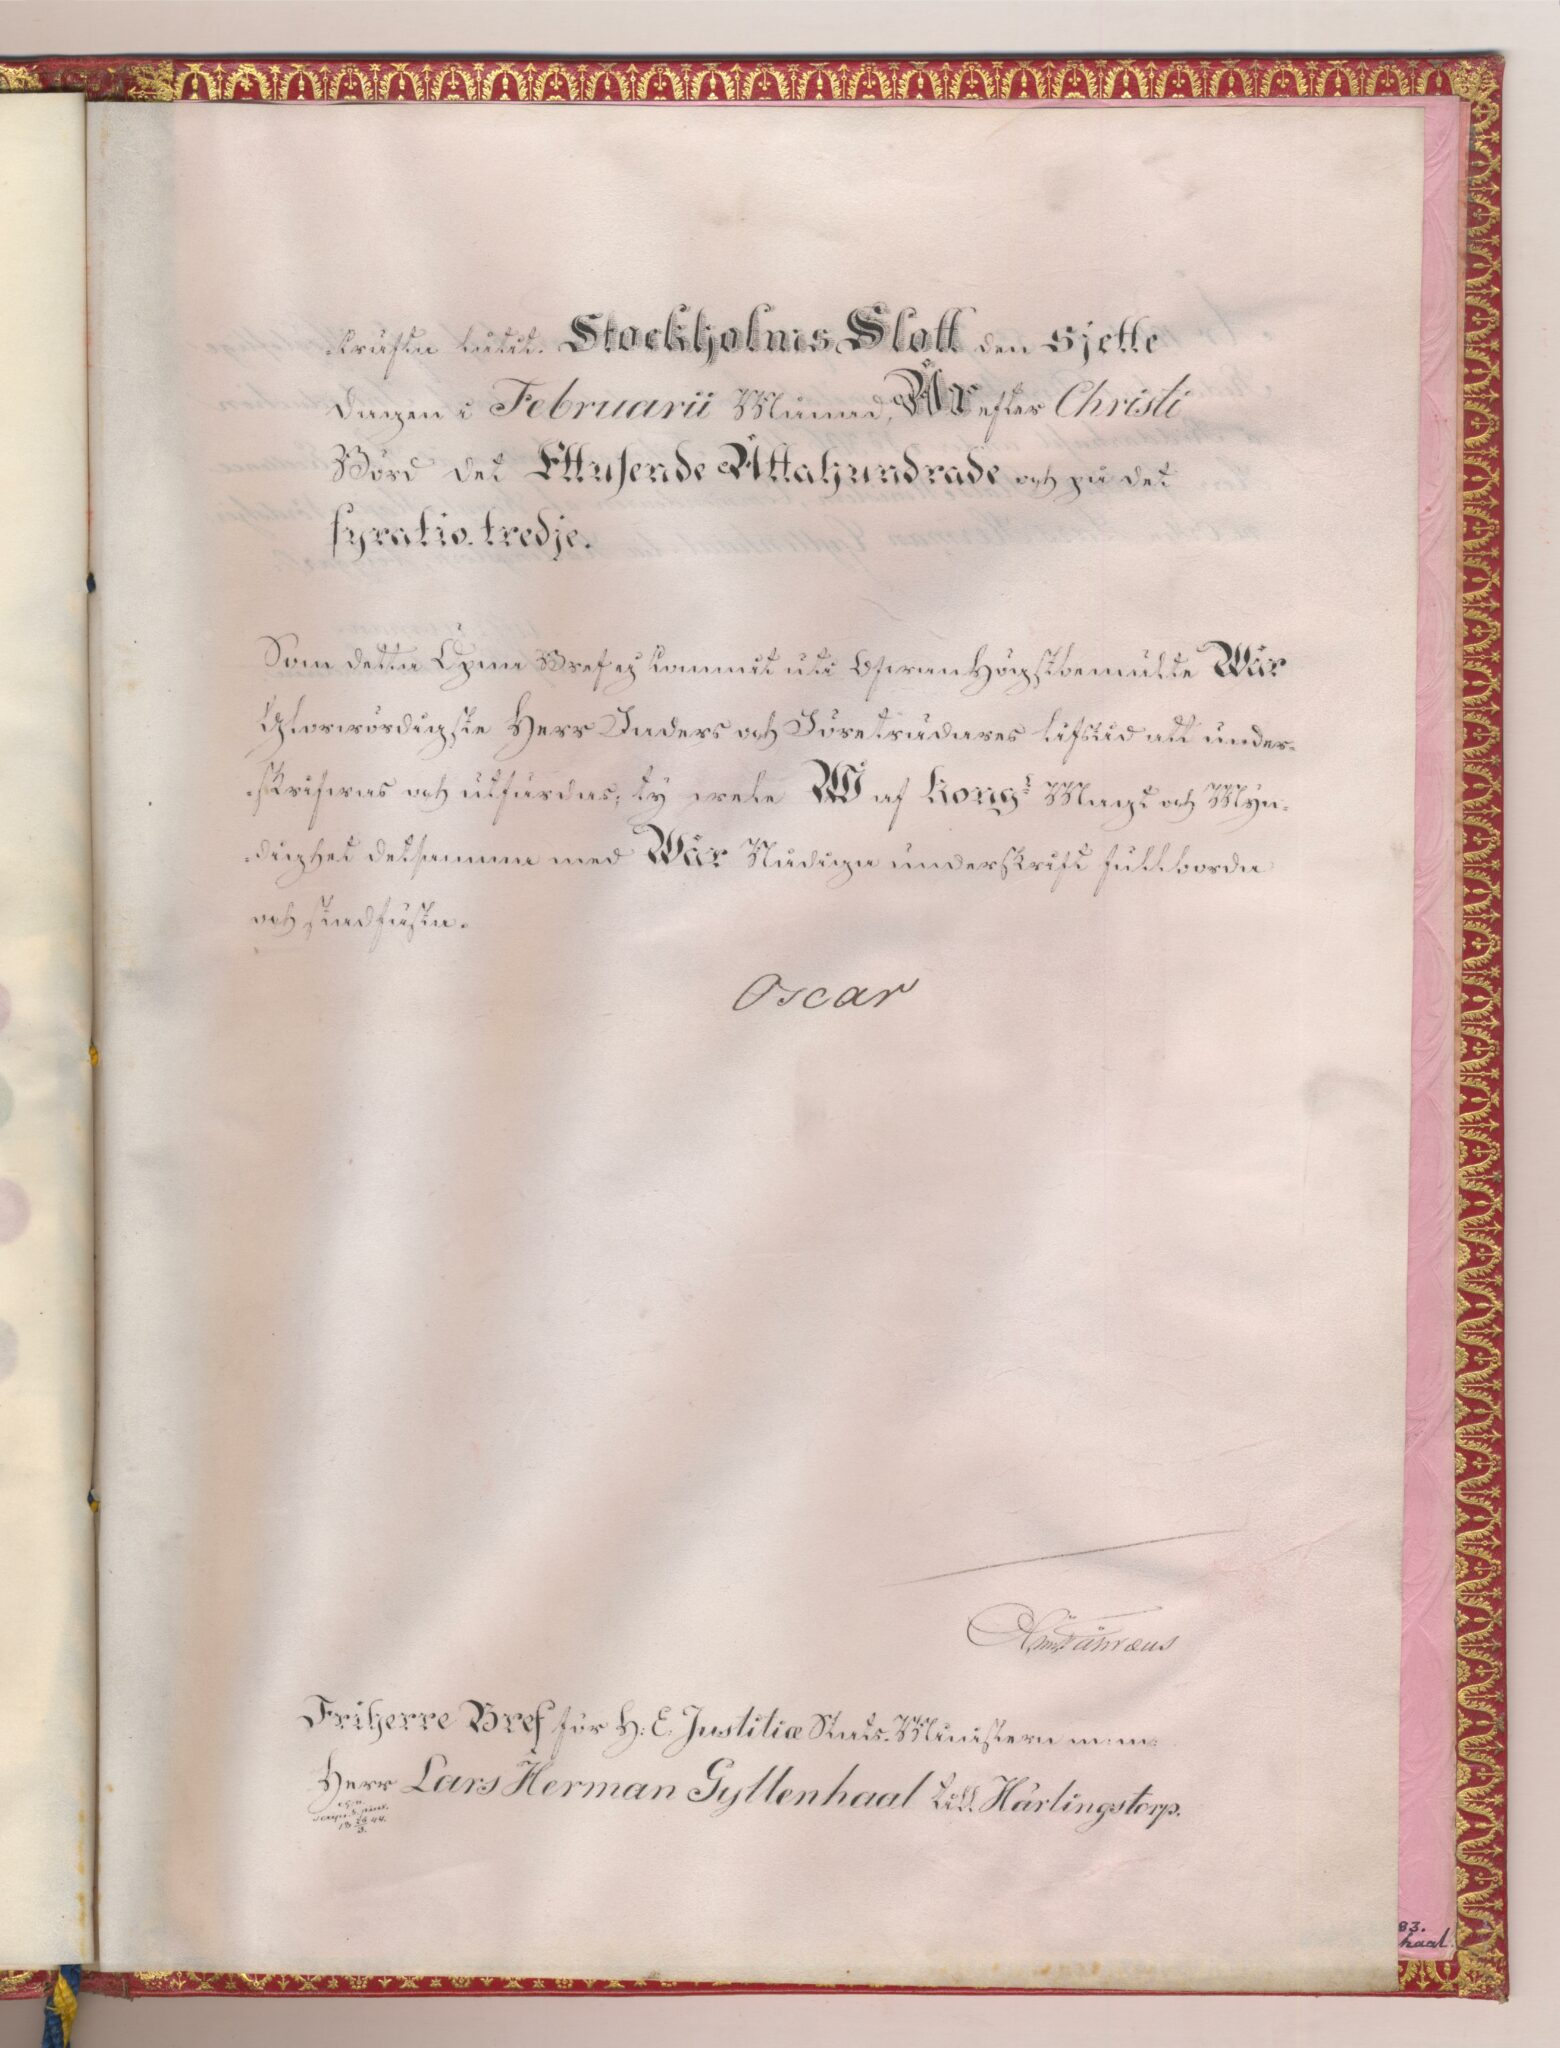 kräfta låtit. Stockholms Slott den sjette
dagen i Februarii Månad, År efter Christi
Börd det Ettusende Åttahundrade och på det
fyratio-tredje.
Som detta Öpna Bref ej kommit uti Ofvan Högstbemälte Wår
Glorwördigste Herr Faders och Företrädares lifstid att under-
skrifwas och utfärdas; ty wele Wi af Kong: Magt och Myn-
dighet detsamma med Wår Nådiga underskrift fullborda
och stadfästa.
Oscar
Friherre Bref för H: E. Justitiæ Stats-Ministern m: m:
Herr Lars Herman Gyllenhaal till Härlingstorp.
83.
haal.